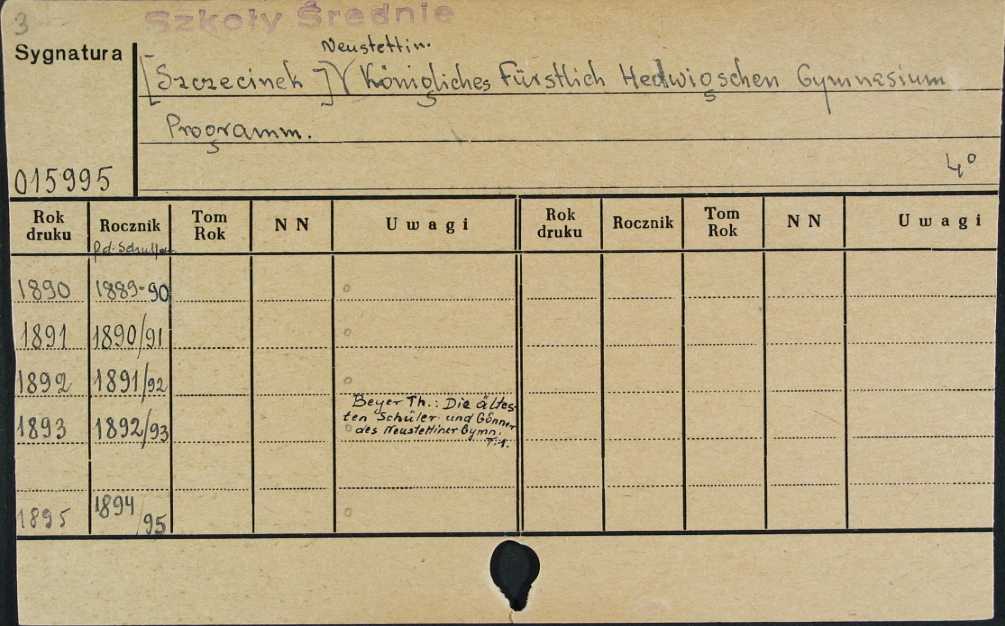 3
Szkoły Średnie
Sygnatura
Neustettin.
[Szczecinek] Königliches Fürstlich Hedwigschen Gymnasium
Programm.
015995
4°
Rok druku Rocznik Tom Rok NN Uwagi Rok druku Rocznik Tom Rok NN Uwagi
1890 1889-90
1891 1890/91
1892 1891/92
1893 1892/93 Beyer Th.: Die ältes-
ten Schüler und Gönner
des Neustettiner Gymn.
T. 1.
1895 1894/95